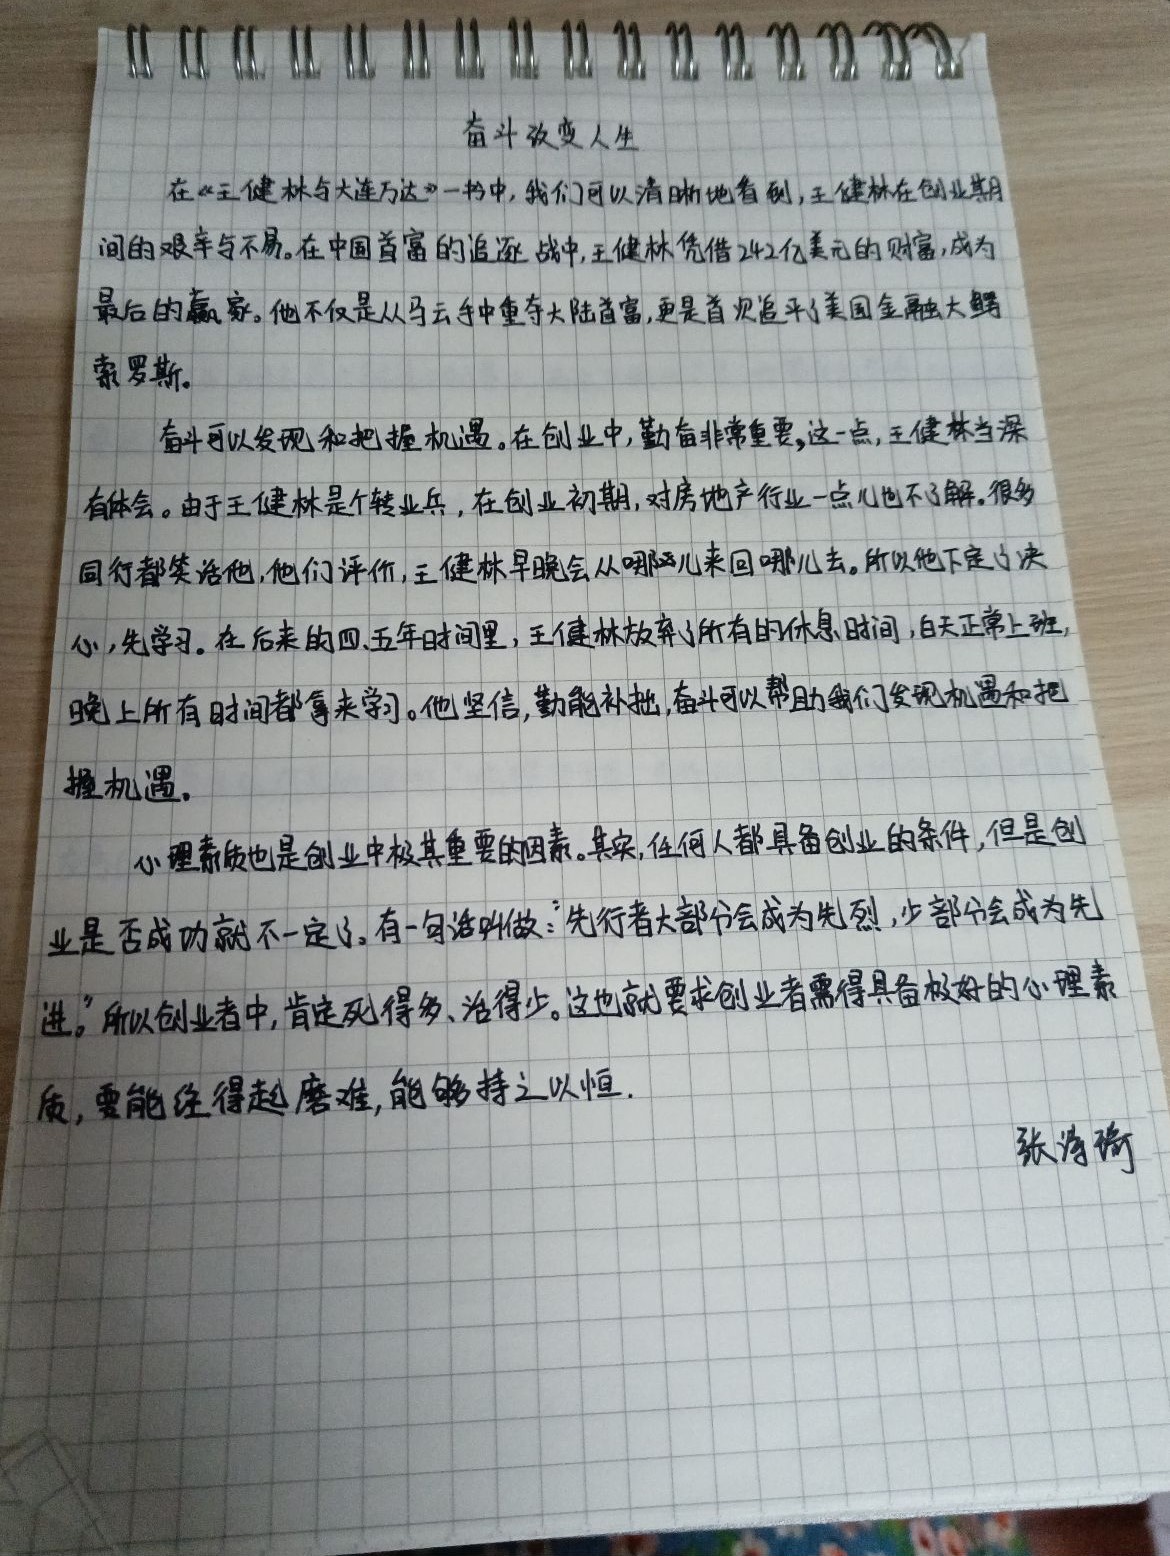 奋斗改变人生
在《王健林与大连万达》一书中,我们可以清晰地看到,王健林在创业期
间的艰辛与不易。在中国首富的追逐战中,王健林凭借242亿美元的财富,成为
最后的赢家。他不仅是从马云手中重夺大陆首富,更是首次追平了美国金融大鳄
索罗斯。
奋斗可以发现和把握机遇。在创业中,勤奋非常重要,这一点,王健林当深
有体会。由于王健林是个转业兵,在创业初期,对房地产行业一点儿也不了解。很多
同行都笑话他,他们评价,王健林早晚会从哪儿来回哪儿去。所以他下定了决
心,先学习。在后来的四、五年时间里,王健林放弃了所有的休息时间,白天正常上班,
晚上所有时间都拿来学习。他坚信,勤能补拙,奋斗可以帮助我们发现机遇和把
握机遇。
心理素质也是创业中极其重要的因素。其实,任何人都具备创业的条件,但是创
业是否成功就不一定了。有一句话叫做:“先行者大部分会成为先烈,少部分会成为先
进。”所以创业者中,肯定死得多、活得少。这也就要求创业者需得具备极好的心理素
质,要能经得起磨难,能够持之以恒.
张诗琦